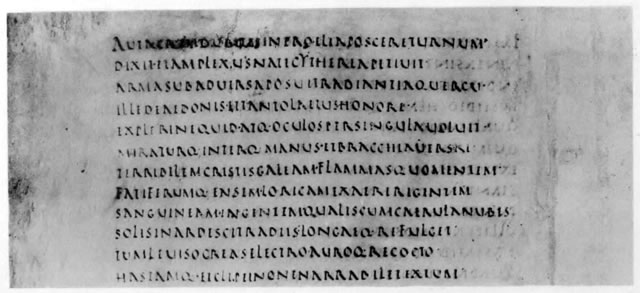 AUTACREMDUBITESINPROELIAPOSCERETURNUM
DIXITETAMPLEXUSNATICYTHEREAPETIUIT
ARMASUBADUERSAPOSUITRADIANTIAQUERCU·
ILLEDEAEDONISETTANTOLAETUSHONORE
EXPLERINEQUIDATQ·OCULOSPERSINGULAUOLUIT
MIRATURQ·INTERQ·MANUS·ETBRACCHIAUERSAT
TERRIBILEMCRISTISGALEAMFLAMMASQ·UOMENTEM
FATIFERUMQ·ENSEMLORICAMEXAERERIGENTEM
SANGUINEAMINGENTEMQUALISCUMCAERULANUBES
SOLISINARDESCITRADIISLONGEQ·REFULGET
TUMLEUISOCREASELECTROAUROQ·RECOCTO
HASTAMQ·ETCLIPEINONENARRABILETEXTUM